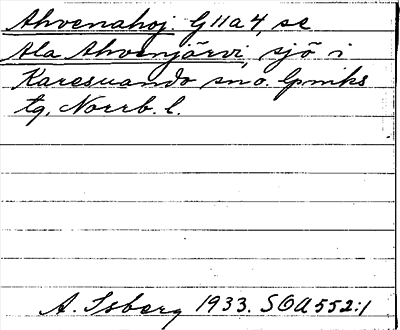 Ahvenahoj G11a4, se
Ala Ahvenjärvi, sjö i
Karesuando sn o. lpmks
tg, Norrb. l.
A. Isberg 1933. SOA 552:1